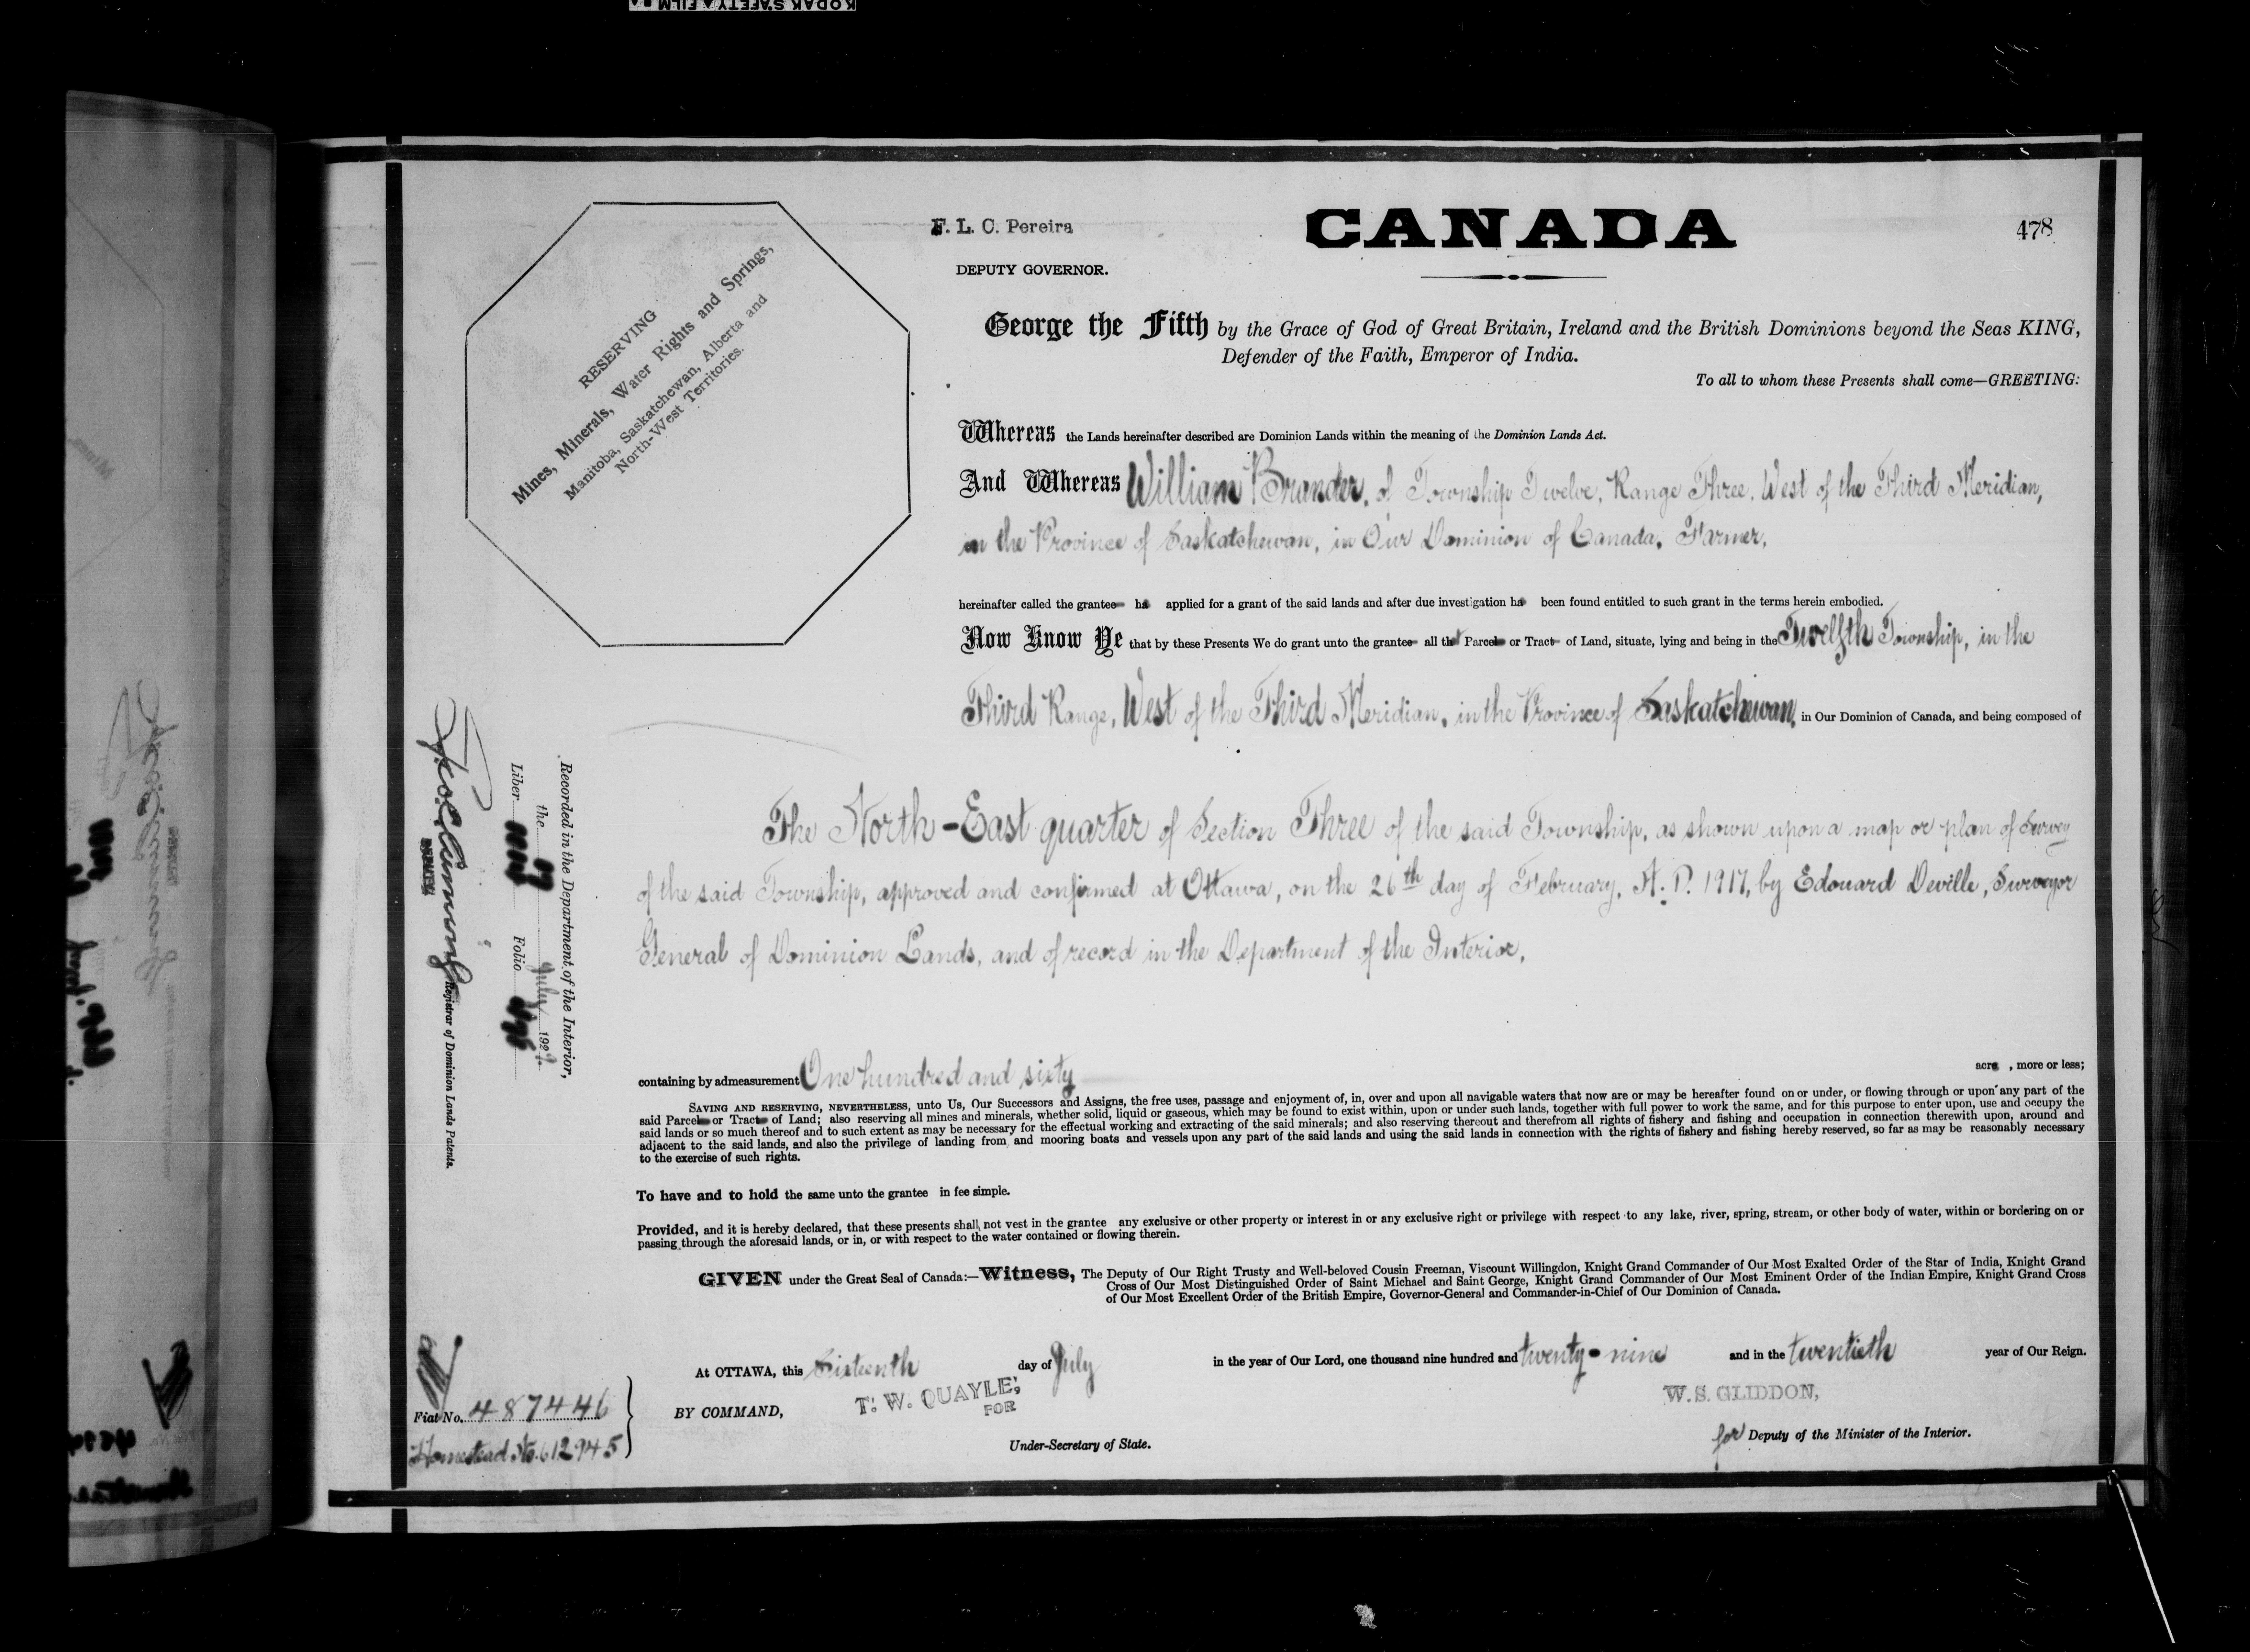 KODAK SAFETY FILM
F. L. C. Pereira
DEPUTY GOVERNOR.
CANADA
478
RESERVING
Mines, Minerals, Water Rights and Springs,
Manitoba, Saskatchewan, Alberta and
North-West Territories.
George the Fifth by the Grace of God of Great Britain, Ireland and the British Dominions beyond the Seas KING,
Defender of the Faith, Emperor of India.
To all to whom these Presents shall come—GREETING:
Whereas the Lands hereinafter described are Dominion Lands within the meaning of the Dominion Lands Act.
And Whereas William Brander, of Township Twelve, Range Three, West of the Third Meridian,
in the Province of Saskatchewan, in Our Dominion of Canada, Farmer,
hereinafter called the grantee ha applied for a grant of the said lands and after due investigation ha been found entitled to such grant in the terms herein embodied.
Now Know Ye that by these Presents We do grant unto the grantee all that Parcel or Tract of Land, situate, lying and being in the Twelfth Township, in the
Third Range, West of the Third Meridian, in the Province of Saskatchewan, in Our Dominion of Canada, and being composed of
The North-East quarter of Section Three of the said Township, as shown upon a map or plan of Survey
of the said Township, approved and confirmed at Ottawa, on the 26th day of February, A.D. 1917, by Edouard Deville, Surveyor
General of Dominion Lands, and of record in the Department of the Interior.
containing by admeasurement One hundred and sixty acre , more or less;
SAVING AND RESERVING, NEVERTHELESS, unto Us, Our Successors and Assigns, the free uses, passage and enjoyment of, in, over and upon all navigable waters that now are or may be hereafter found on or under, or flowing through or upon any part of the
said Parcel or Tract of Land; also reserving all mines and minerals, whether solid, liquid or gaseous, which may be found to exist within, upon or under such lands, together with full power to work the same, and for this purpose to enter upon, use and occupy the
said lands or so much thereof and to such extent as may be necessary for the effectual working and extracting of the said minerals; and also reserving thereout and therefrom all rights of fishery and fishing and occupation in connection therewith upon, around and
adjacent to the said lands, and also the privilege of landing from and mooring boats and vessels upon any part of the said lands and using the said lands in connection with the rights of fishery and fishing hereby reserved, so far as may be reasonably necessary
to the exercise of such rights.
To have and to hold the same unto the grantee in fee simple.
Provided, and it is hereby declared, that these presents shall not vest in the grantee any exclusive or other property or interest in or any exclusive right or privilege with respect to any lake, river, spring, stream, or other body of water, within or bordering on or
passing through the aforesaid lands, or in, or with respect to the water contained or flowing therein.
GIVEN under the Great Seal of Canada:—Witness, The Deputy of Our Right Trusty and Well-beloved Cousin Freeman, Viscount Willingdon, Knight Grand Commander of Our Most Exalted Order of the Star of India, Knight Grand
Cross of Our Most Distinguished Order of Saint Michael and Saint George, Knight Grand Commander of Our Most Eminent Order of the Indian Empire, Knight Grand Cross
of Our Most Excellent Order of the British Empire, Governor-General and Commander-in-Chief of Our Dominion of Canada.
At OTTAWA, this Sixteenth day of July in the year of Our Lord, one thousand nine hundred and twenty-nine and in the twentieth year of Our Reign.
BY COMMAND,
T. W. QUAYLE,
FOR
Under-Secretary of State.
W. S. GLIDDON,
for Deputy of the Minister of the Interior.
Recorded in the Department of the Interior,
the July 1929
Liber Folio
Registrar of Dominion Lands Patents.
Fiat No. 487446
Homestead No. 612945